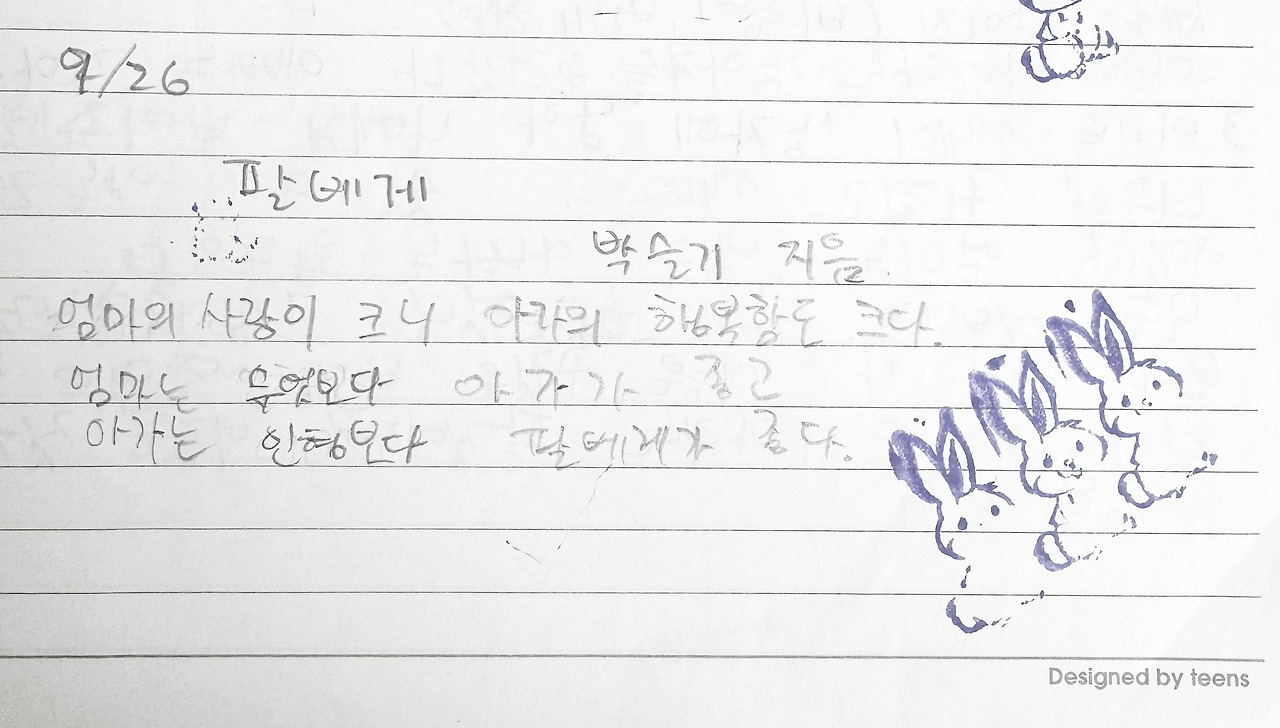 9/26
팔베게
박슬기 지음.
엄마의 사랑이 크니 아가의 행복함도 크다.
엄마는 무엇보다 아가가 좋고
아가는 인형보다 팔베게가 좋다.
Designed by teens